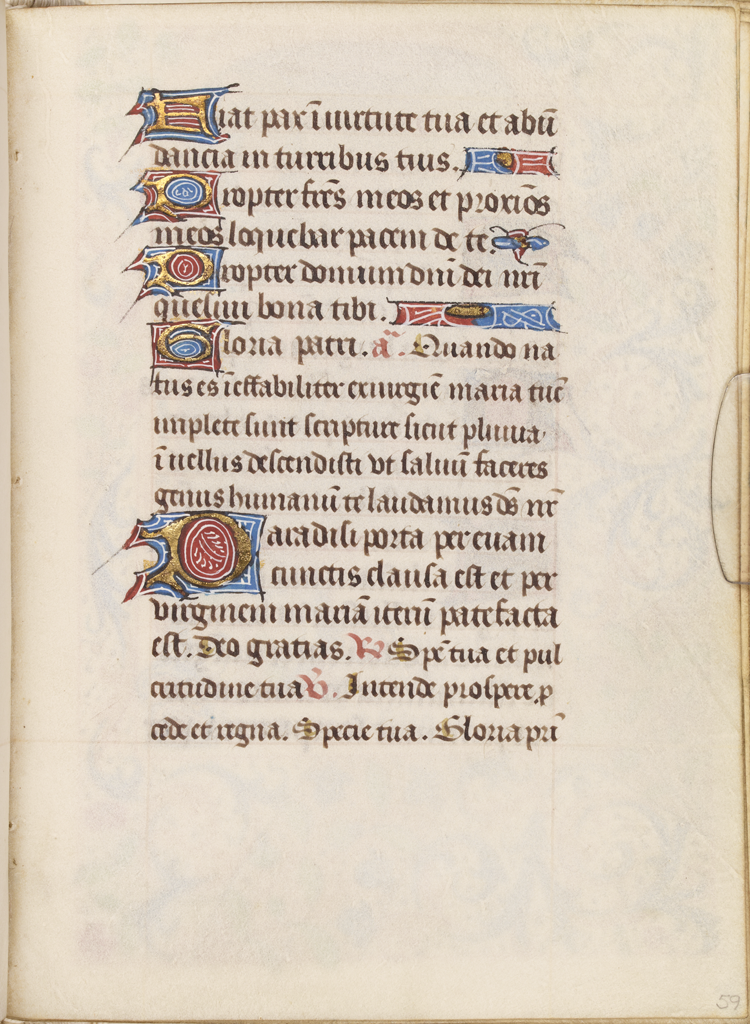 Fiat pax ī uirtute tua et abū
dancia in turribus tuis.
Propter fr̄es meos et proxīos
meos loquebar pacem de te.
Propter domum dnī dei nr̄i
quesiui bona tibi.
Gloria patri. a̅. Quando na
tus es īeffabiliter ex uirgīe maria tūc
implete sunt scripture sicut pluuia
ī uellus descendisti vt saluū faceres
genus humanū te laudamus ds̄ nr̄
Paradisi porta per euam
cunctis clausa est et per
virginem mariā iterū patefacta
est. Deo gratias. R Spē tua et pul
critudine tua V. Intende prospere ꝓ
cede et regna. Specie tua. Gloria pr̄i
59